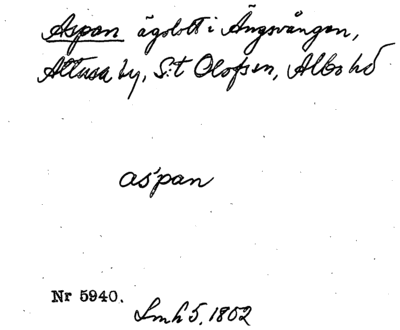 Aspan ägolott i Ängsvången,
Attusa by, S:t Olofs sn, Albo hd
aspan
Nr 5940.
Lmh 5, 1802